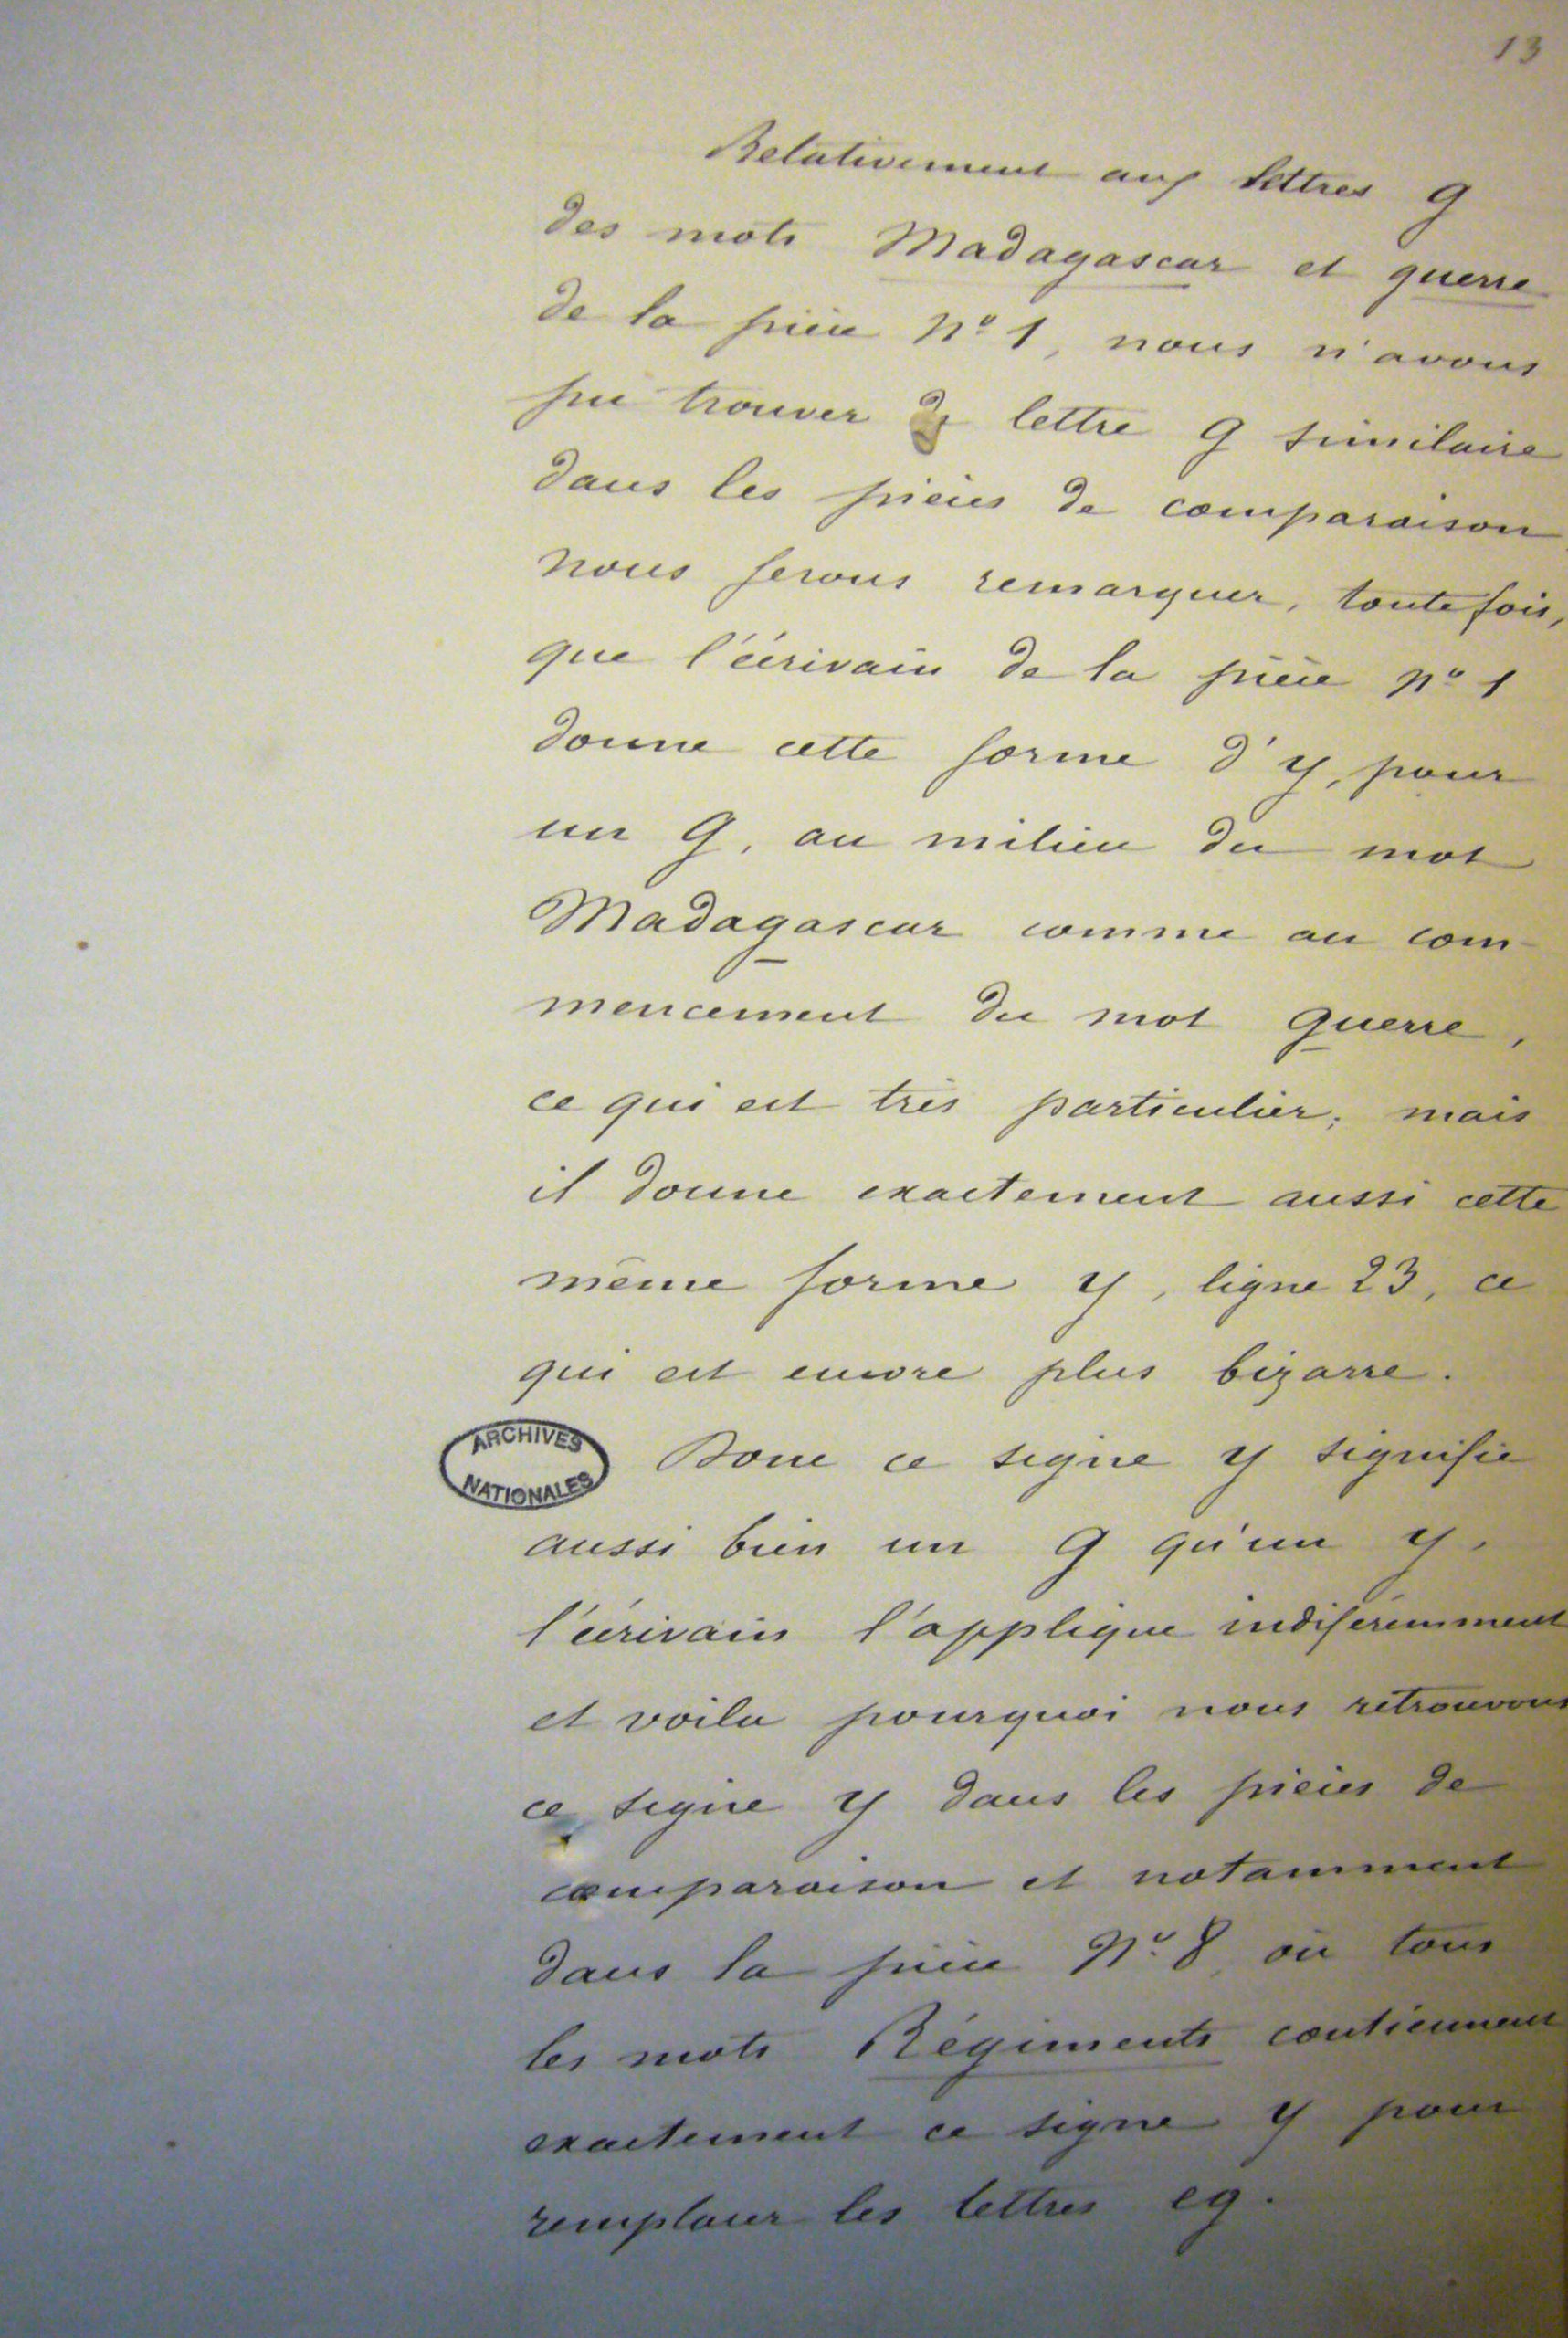 13
Relativement aux lettres g
des mots Madagascar et guerre
de la pièce No 1, nous n'avons
pu trouver de lettre g similaire
dans les pièces de comparaison
nous ferons remarquer, toutefois,
que l'écrivain de la pièce no 1
donne cette forme d'y, pour
un g, au milieu du mot
Madagascar comme au com-
mencement du mot guerre,
ce qui est très particulier; mais
il donne exactement aussi cette
même forme y, ligne 23, ce
qui est encore plus bizarre.
ARCHIVES
NATIONALES
Donc ce signe y signifie
aussi bien un g qu'un y,
l'écrivain l'applique indiféremment
et voila pourquoi nous retrouvons
ce signe y dans les pièces de
comparaison et notamment
dans la pièce No 8, où tous
les mots Régiments contiennent
exactement ce signe y pour
remplacer les lettres eg.